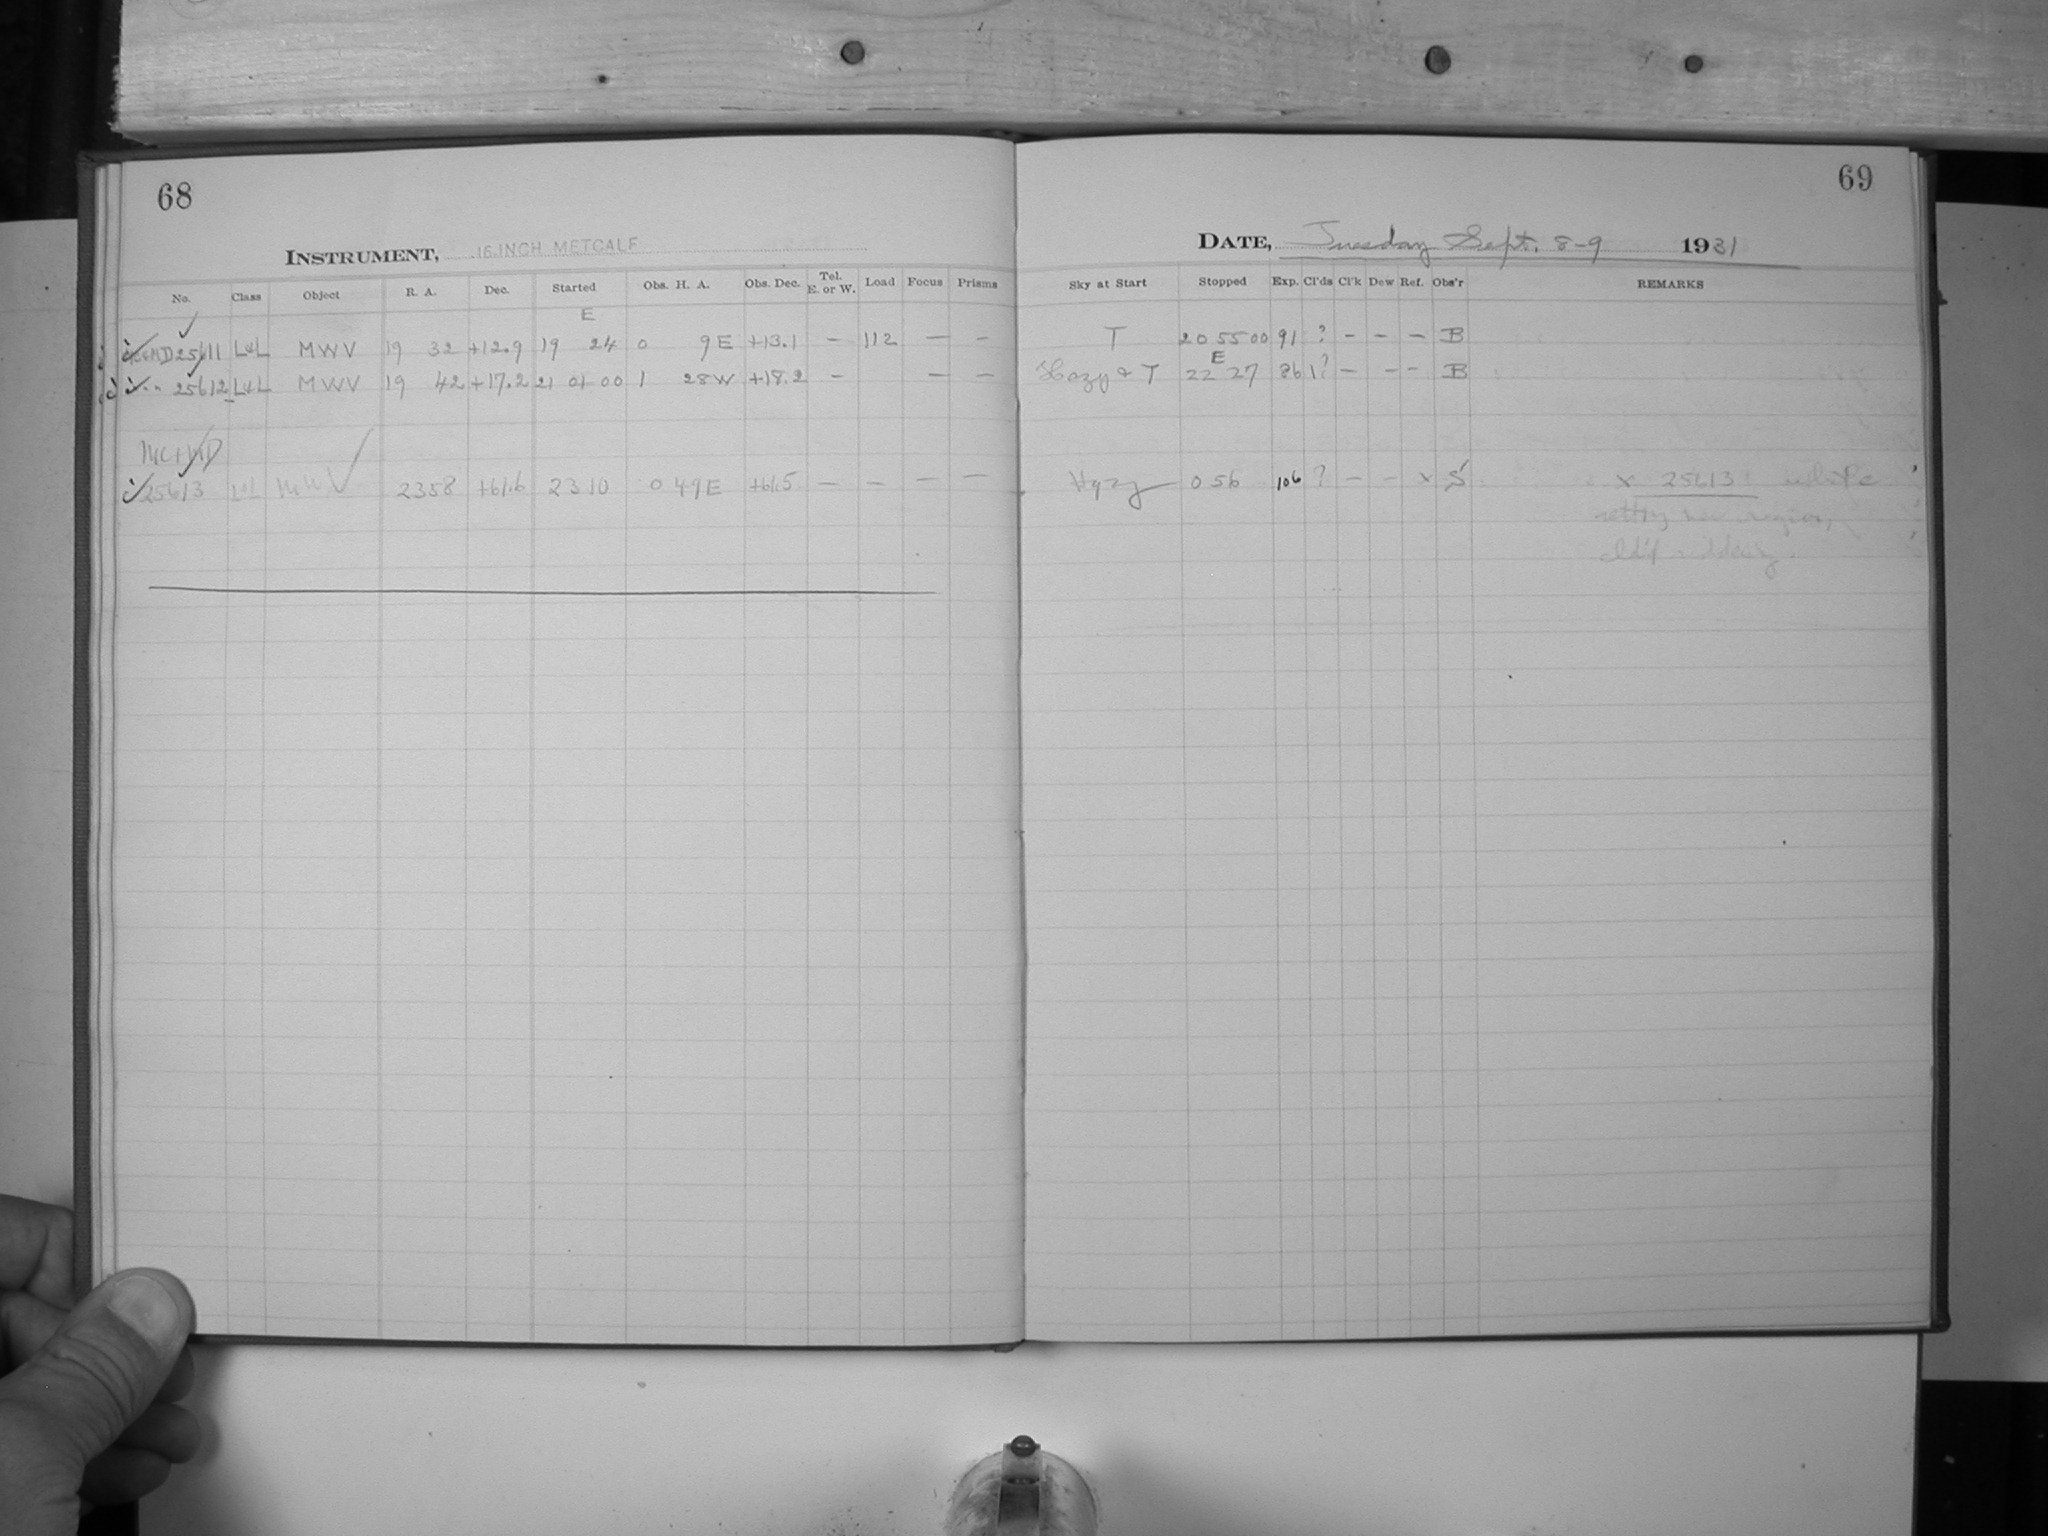 68
INSTRUMENT, 16 INCH METCALF
No. Class Object R. A. Dec. Started Obs. H. A. Obs. Dec. Tel. E. or W. Load Focus Prisms
E
25611 L&L MWV 19 32 +12.9 19 24 0 9E +13.1 — 112 — —
25612 L&L MWV 19 42 +17.2 21 01 00 1 28W +18.2 — — —
25613 2358 +61.6 2310 0 49E +61.5 — — — —
69
DATE, Tuesday Sept. 8-9 1931
Sky at Start Stopped Exp. Cl'ds Cl'k Dew Ref. Obs'r REMARKS
T 20 55 00 91 ? — — — B
E
Hazy & T 22 27 86 1? — — — B
Hazy 0 56 106 ? — — x S x 25613 while
setting new region,